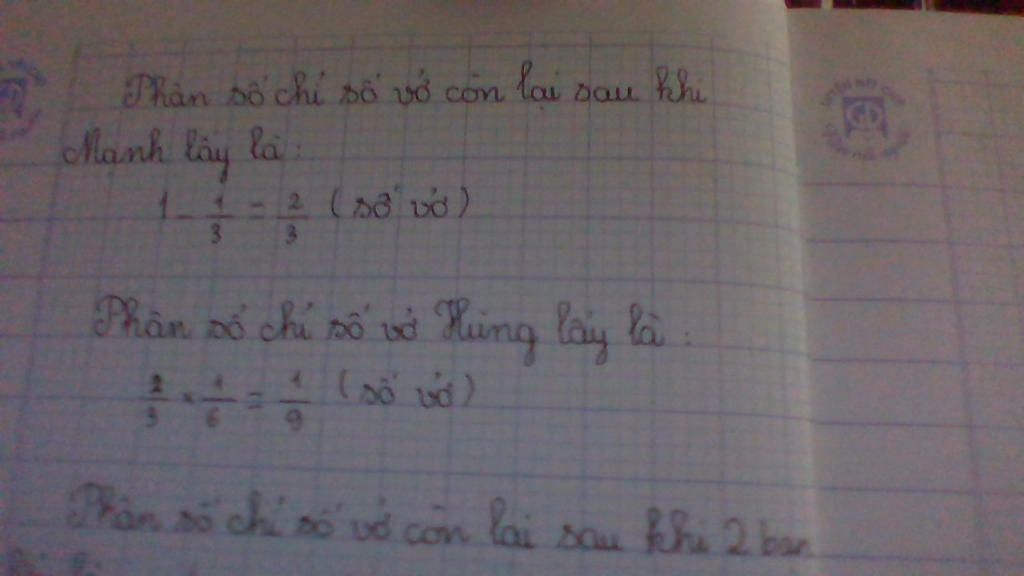 Phân số chỉ số vở còn lại sau khi
Mạnh lấy là:
1 - 1/3 = 2/3 (số vở)
Phân số chỉ số vở Hùng lấy là:
2/3 × 1/6 = 1/9 (số vở)
Phân số chỉ số vở còn lại sau khi 2 bạn